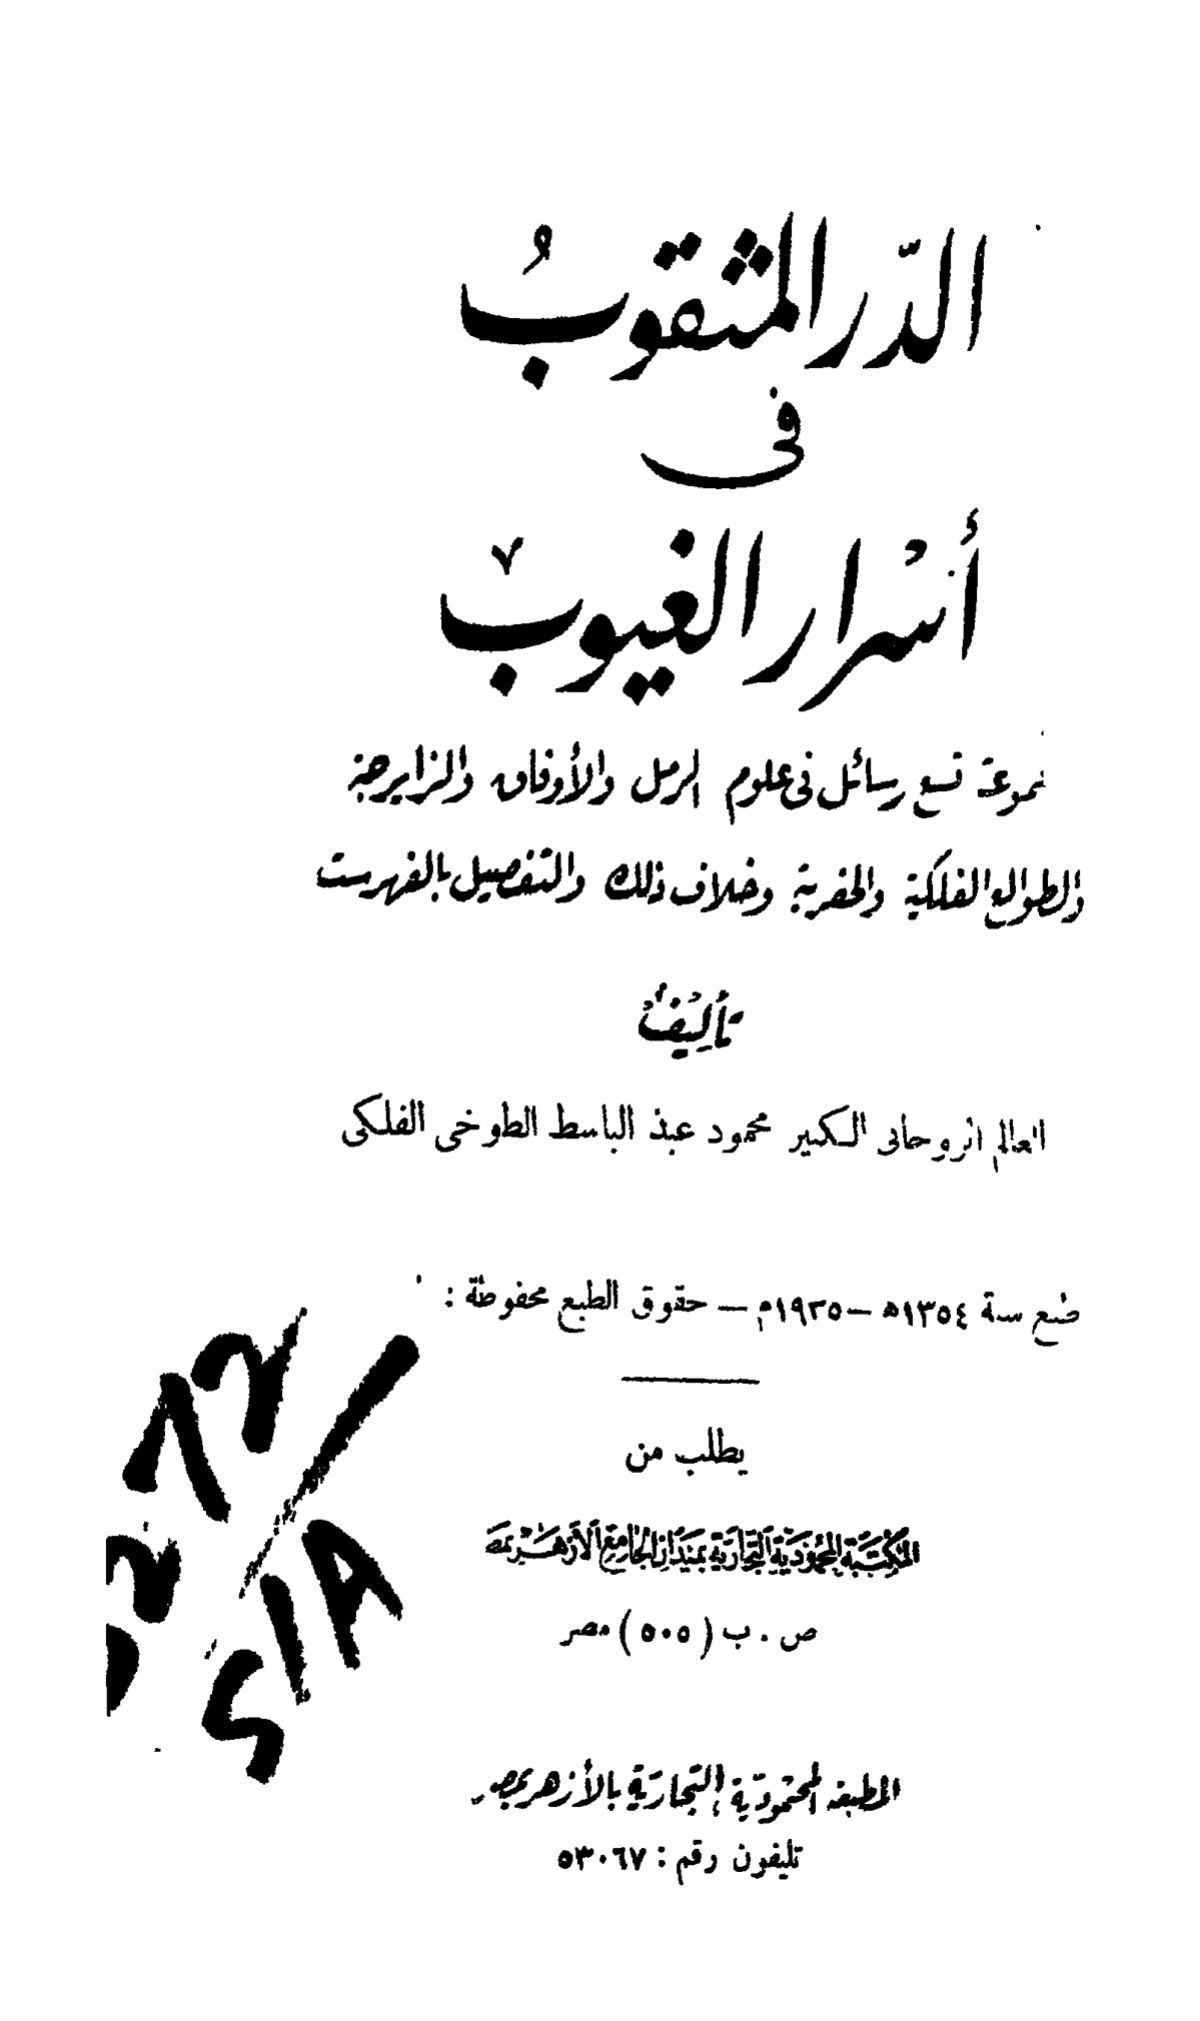 الدّر المثقوبُ
فى
أسْرار الغيوب
مجموعة تسع رسائل فى علوم الرمل والأوفاق والزايرجة
والطوالع الفلكية والجفرية وخلاف ذلك والتفصيل بالفهرست
تأليفُ
العالم الروحانى الكبير محمود عبد الباسط الطوخى الفلكى
طبع سنة ١٣٥٤ه — ١٩٣٥م — حقوق الطبع محفوظة :
يطلب من
المكتبة المحمودية التجارية بميدان الجامع الأزهر بمصر
ص . ب ( ٥٠٥ ) مصر
المطبعة المحمودية التجارية بالأزهر بمصر
تليفون رقم : ٥٣٠٦٧